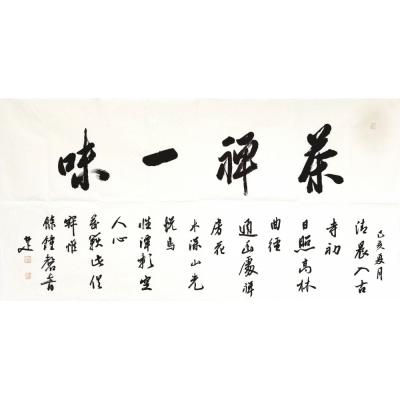 茶禅一味
己亥夏月
清晨入古
寺初
日照高林
曲径
通幽處禅
房花
木深山光
悦鸟
性潭影空
人心
萬籁此俱
寂惟
餘鐘磬音